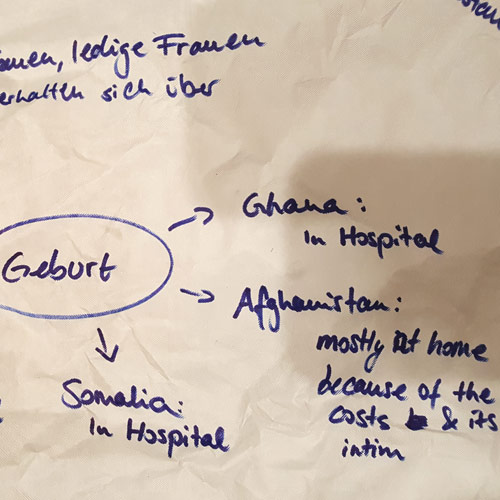 ledige Frauen
sich über
Geburt
Ghana:
In Hospital
Afghanistan:
mostly at home
because of the
costs & its
intim
Somalia:
In Hospital